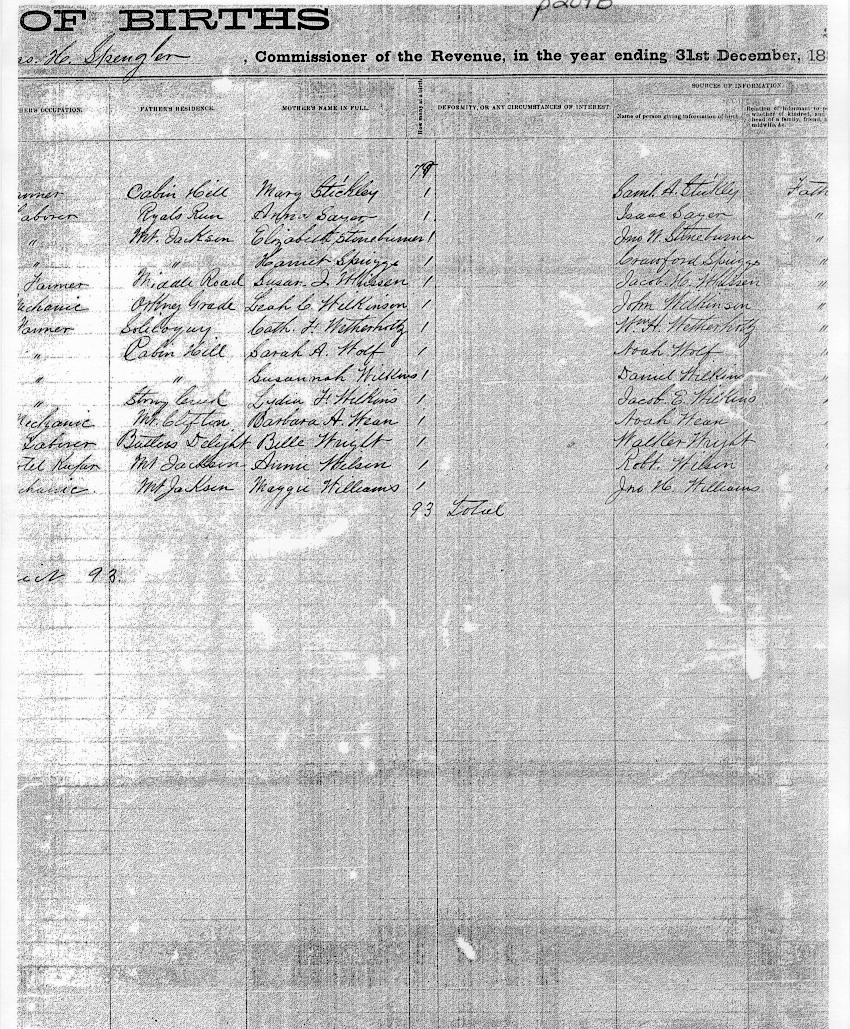 OF BIRTHS
H. Spengler, Commissioner of the Revenue, in the year ending 31st December, 18
OCCUPATION. FATHER'S RESIDENCE. MOTHER'S NAME IN FULL. How many at a birth DEFORMITY, OR ANY CIRCUMSTANCES OF INTEREST. SOURCES OF INFORMATION.
Name of person giving information of birth. Relation of informant
whether of kindred, and
head of a family, friend,
midwife, &c.
79
Cabin Hill Mary Stickley 1 Saml. A. Stickley Fath
Ryals Run Anna Sager 1 Isaac Sager "
" Mt. Jackson Elizabeth Stoneburner 1 Jno W. Stoneburner "
" " Harriet Spriggs 1 Crawford Spriggs "
Farmer Middle Road Susan J. Whissen 1 Jacob H. Whissen "
echanic Orkney Grade Leah C. Wilkinson 1 John Wilkinson "
Farmer Cath. F. Wetherholtz 1 Wm H. Wetherholtz "
" Cabin Hill Sarah A. Wolf 1 Noah Wolf "
" " Susannah Wilkins 1 Daniel Wilkins "
" Stony Creek Lydia F. Wilkins 1 Jacob E. Wilkins "
Mechanic Mt. Clifton Barbara A. Wean 1 Noah Wean "
Laborer Butlers Delight Belle Wright 1 Walker Wright "
Mt Jackson Annie Wilson 1 Robt. Wilson "
chanic. Mt Jackson Maggie Williams 1 Jno H. Williams "
93 Total
93.